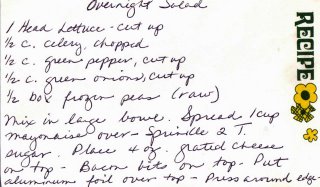 Overnight Salad
1 Head Lettuce - cut up
1/2 c. celery, chopped
1/2 c. green pepper, cut up
1/2 c. green onions, cut up
1/2 box frozen peas (raw)
Mix in large bowl. Spread 1 cup
mayonaise over - Sprinkle 2 T.
sugar. Place 4 oz. grated cheese
on top - Bacon bits on top - Put
aluminum foil over top - Press around edge -
RECIPE